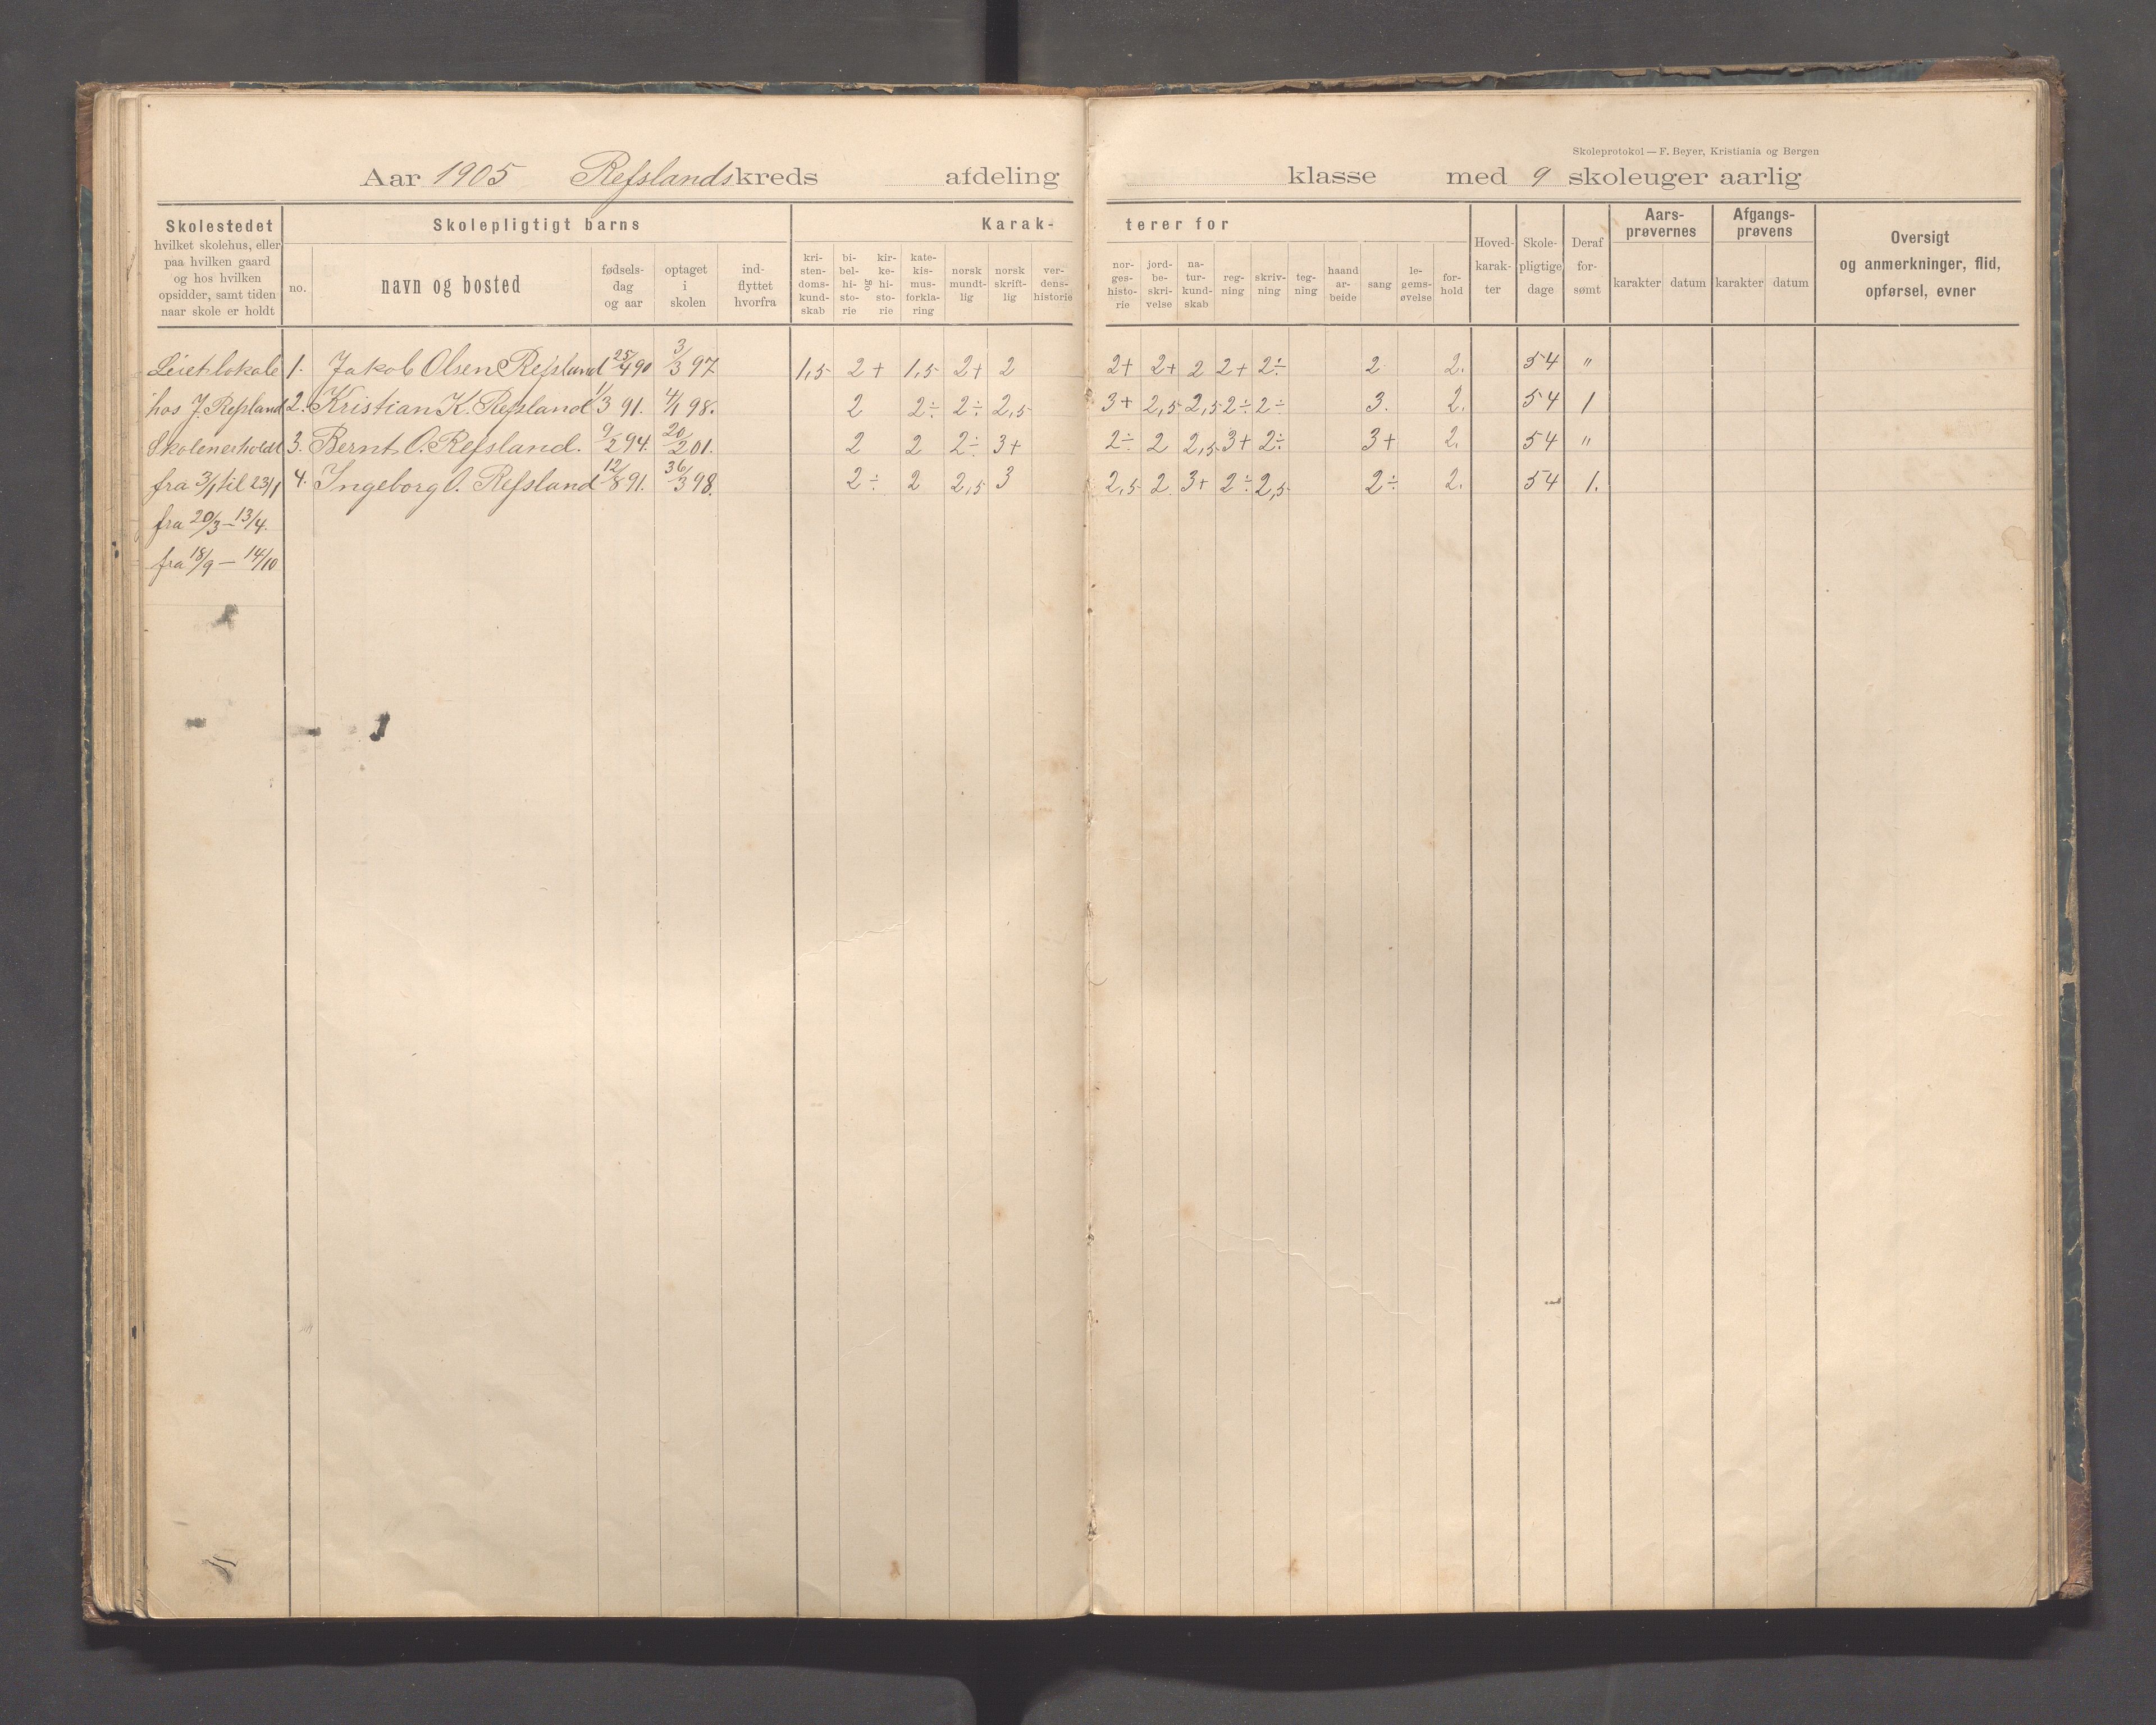 Skoleprotokol — F. Beyer, Kristiania og Bergen
Aar 1905 Refslands kreds afdeling klasse med 9 skoleuger aarlig
Skolestedet
hvilket skolehus, eller
paa hvilken gaard
og hos hvilken
opsidder, samt tiden
naar skole er holdt
Skolepligtigt barns
no.
navn og bosted
fødsels-
dag
og aar
optaget
i
skolen
ind-
flyttet
hvorfra
Karak-
kri-
sten-
doms-
kund-
skab
bi-
bel-
hi-
sto-
rie
og
kir-
ke-
hi-
sto-
rie
kate-
kis-
mus-
forkla-
ring
norsk
mundt-
lig
norsk
skrift-
lig
ver-
dens-
historie
terer for
nor-
ges-
histo-
rie
jord-
be-
skri-
velse
na-
tur-
kund-
skab
reg-
ning
skriv-
ning
teg-
ning
haand
ar-
beide
sang
le-
gems-
øvelse
for-
hold
Hoved-
karak-
ter
Skole-
pligtige
dage
Deraf
for-
sømt
Aars-
prøvernes
karakter datum
Afgangs-
prøvens
karakter datum
Oversigt
og anmerkninger, flid,
opførsel, evner
Leiet lokale 1. Jakob Olsen Refsland 25/4 90 3/3 97 1,5 2+ 1,5 2+ 2 2+ 2+ 2 2+ 2÷ 2 2. 54 "
hos J. Refsland 2. Kristian K. Refsland 1/3 91. 4/1 98. 2 2÷ 2÷ 2,5 3+ 2,5 2,5 2÷ 2÷ 3. 2. 54 1
Skolen er holdt 3. Bernt O. Refsland. 9/2 94. 20/2 01. 2 2 2÷ 3+ 2÷ 2 2,5 3+ 2÷ 3+ 2. 54 "
fra 3/1 til 23/1 4. Ingeborg O. Refsland 12/8 91. 36/3 98. 2÷ 2 2,5 3 2,5 2 3+ 2÷ 2,5 2÷ 2. 54 1.
fra 20/3 – 13/4.
fra 18/9 – 14/10